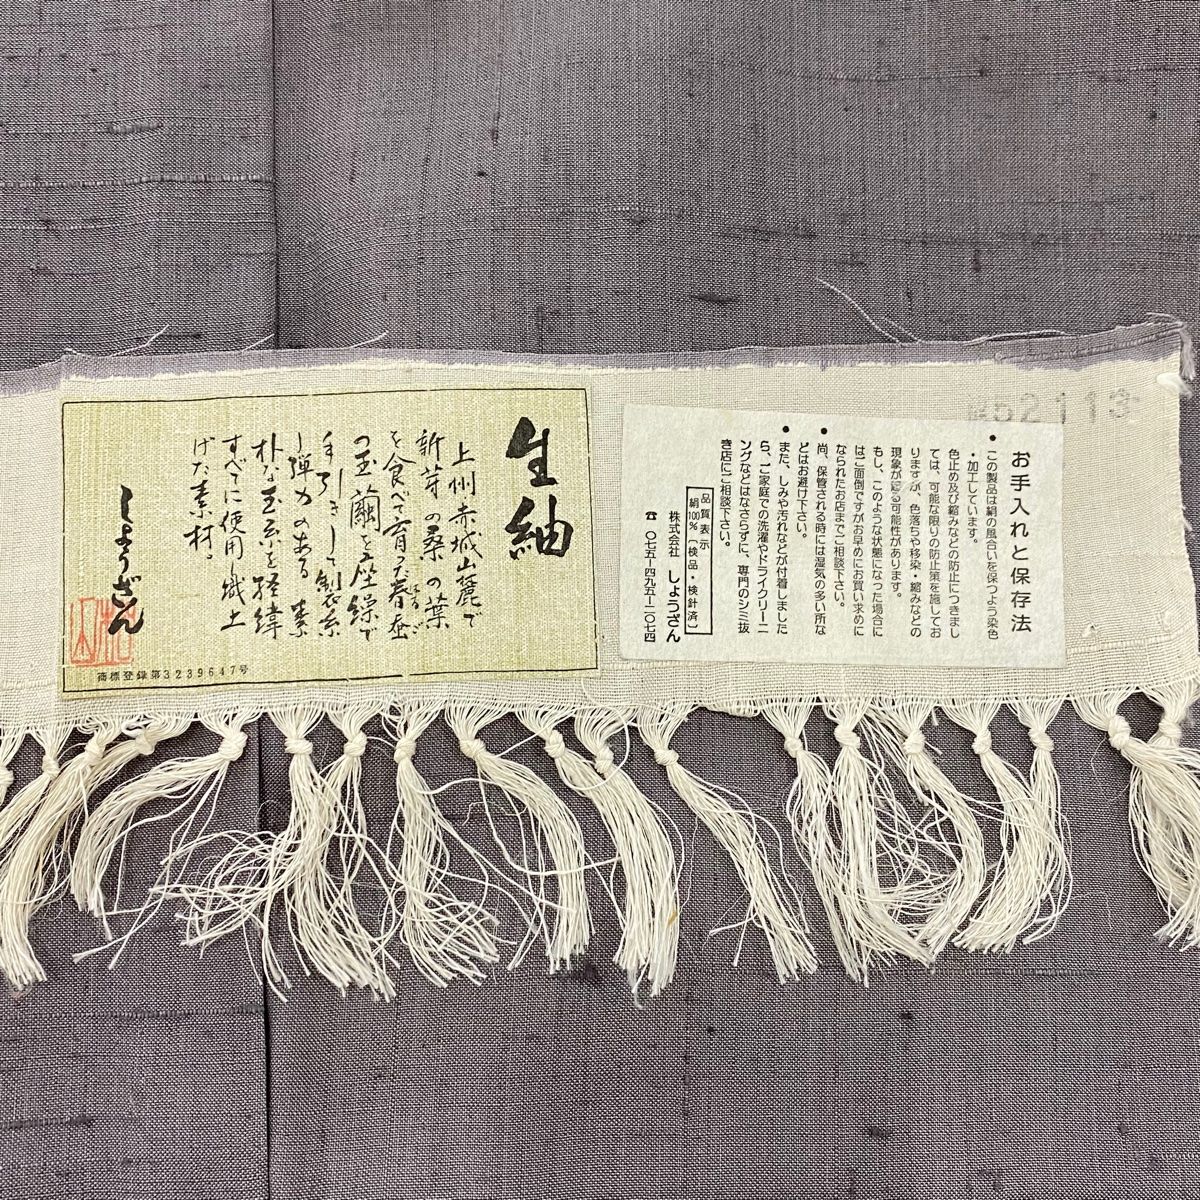 お手入れと保存法
● この製品は絹の風合いを保つよう染色
・加工しています。
色止め及び縮みなどの防止につきまし
ては、可能な限りの防止策を施してお
りますが、色落ちや移染・縮みなどの
現象が起る可能性があります。
もし、このような状態になった場合に
はご面倒ですがお早めにお買い求めに
なられたお店までご相談下さい。
● 尚、保管される時には湿気の多い所な
どはお避け下さい。
● また、しみや汚れなどが付着しました
ら、ご家庭での洗濯やドライクリーニ
ングなどはなさらずに、専門のシミ抜
き店にご相談下さい。
品質表示
絹100%〔検品・検針済〕
株式会社 しょうざん
☎ 〇七五-四九五-二〇七四
生紬
上州赤城山麓で
新芽の桑の葉
を食べて育った春蚕
はるご
の玉繭を座繰で
手引きして製糸
し弾力のある素
朴な玉糸を経緯
すべてに使用し織上
げた素材。
しょうざん
商標登録第3239647号
52113